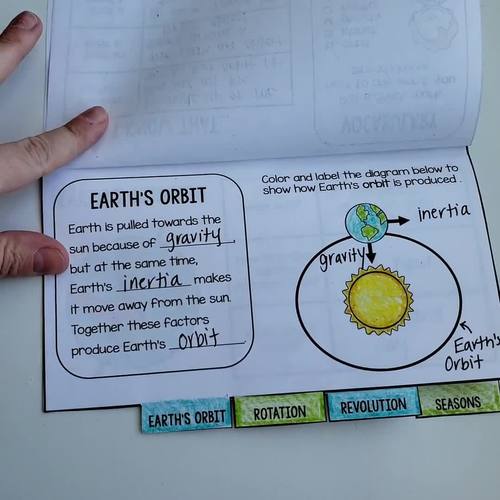 VOCABULARY
EARTH'S ORBIT
Earth is pulled towards the
sun because of gravity,
but at the same time,
Earth's inertia makes
it move away from the sun.
Together these factors
produce Earth's Orbit.
Color and label the diagram below to
show how Earth's orbit is produced.
inertia
gravity
Earth's
Orbit
EARTH'S ORBIT
ROTATION
REVOLUTION
SEASONS